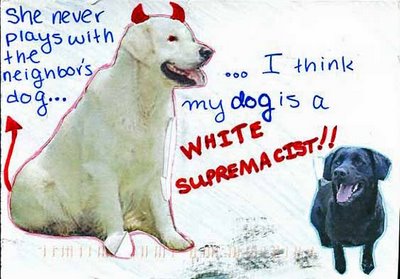 She never
plays with
the
neighbor's
dog...
... I think
my dog is a
WHITE
SUPREMACIST!!